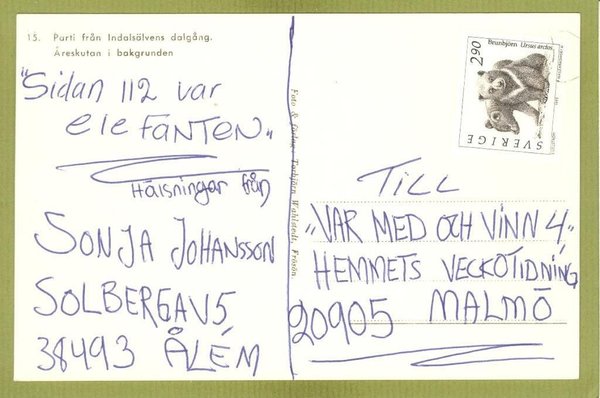 15. Parti från Indalsälvens dalgång.
Åreskutan i bakgrunden
"Sidan 112 var
eleFANTEN"
Hälsningar från
SONJA JOHANSSON
SOLBERGAV5
38493 ÅLÉM
Foto & förlag: Torbjörn Wahlstedt, Frösön
2.90
Brunbjörn Ursus arctos
SVERIGE
TILL
"VAR MED OCH VINN 4"
HEMMETS VECKOTIDNING
20905 MALMÖ